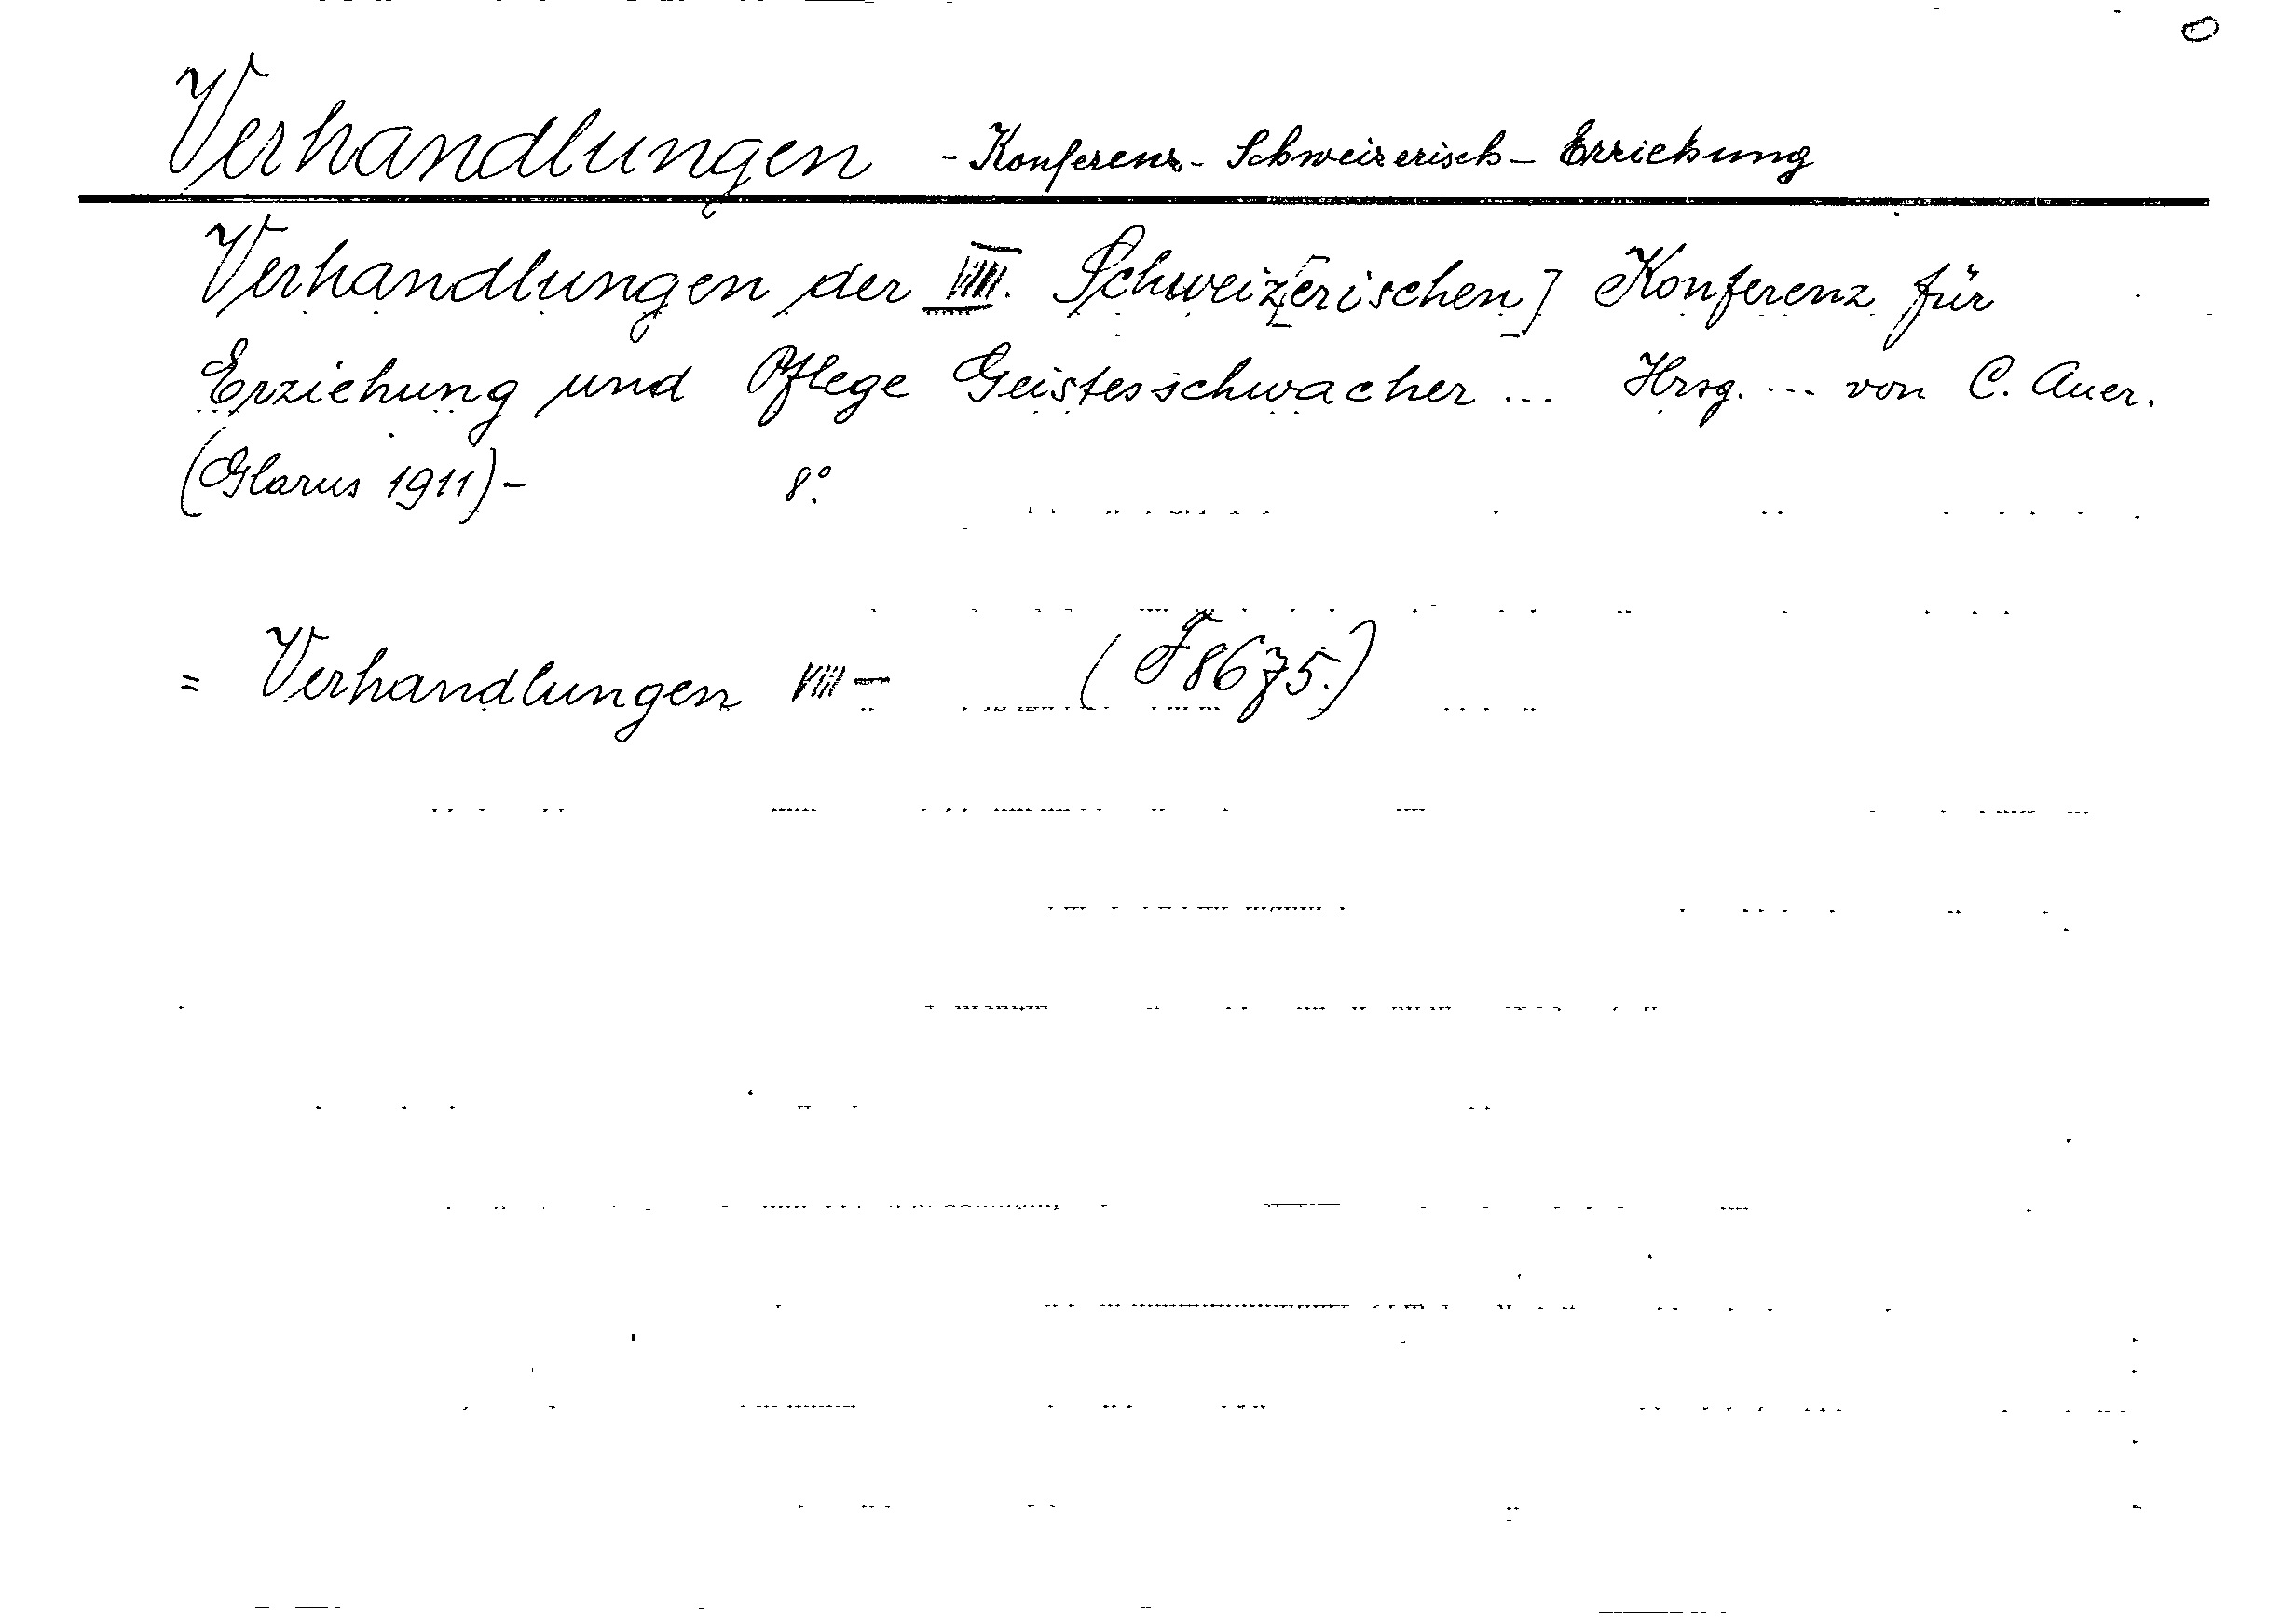 Verhandlungen - Konferenz - Schweizerisch - Erziehung
Verhandlungen der VIII. Schweiz[erischen] Konferenz für
Erziehung und Pflege Geistesschwacher ... Hrsg. ... von C. Auer.
(Glarus 1911) - 8°.
= Verhandlungen VIII - (F8675.)